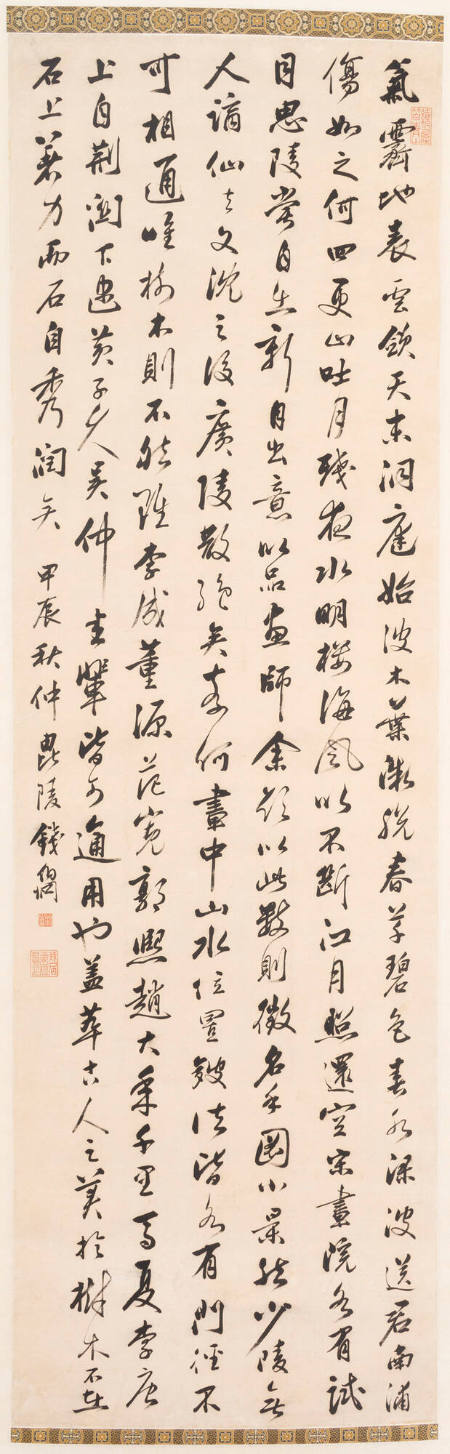 氣霽地表雲斂天末洞庭始波木葉微脫春草碧色春水淥波送君南浦
傷如之何四更山吐月殘夜水明樓海風吹不斷江月照還空宋畫院各有試
目思陵嘗自出新目出意以品畫師余欲以此數則徵名手圖小景然少陵無
人謫仙去文沈之後廣陵散絕矣奈何畫中山水位置皴法皆各有門徑不
可相通唯樹木則不然雖李成董源范寬郭熙趙大年千里馬夏李唐
上自荊關下逮黃子久吳仲圭輩皆可通用也蓋萃古人之美於樹木不在
石上著力而石自秀潤矣 甲辰秋仲 毘陵錢伯坰